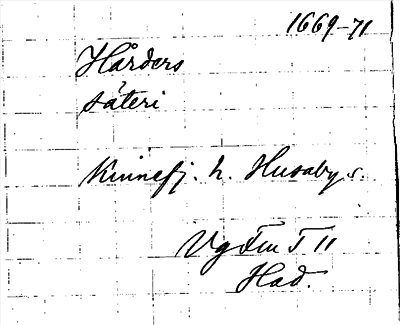 1669-71
Hårders
säteri
Kinnefj. h. Husaby s.
Vg Fm T 11
Had.